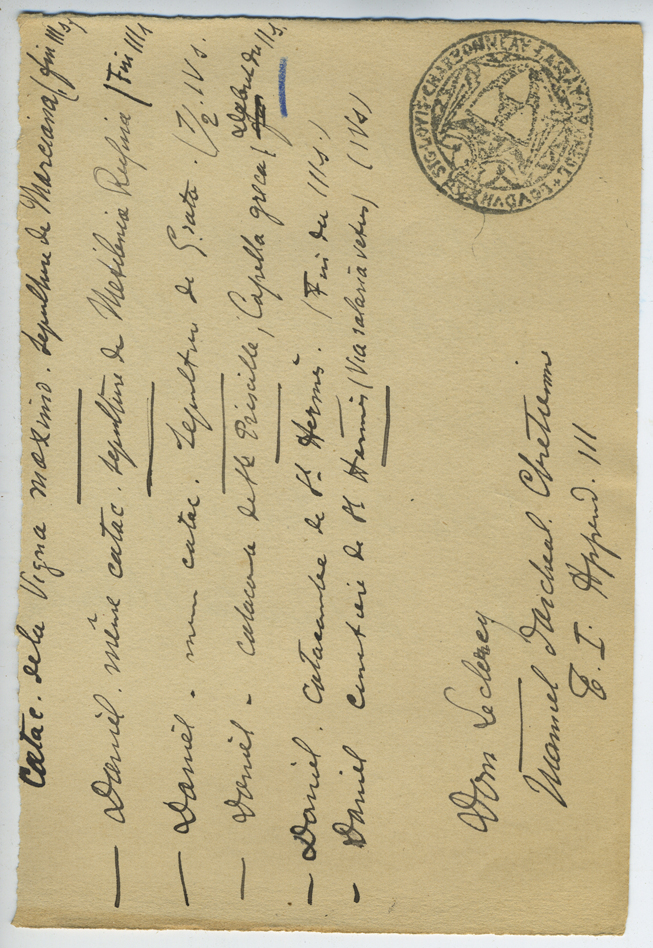 Catac. de la Vigna maximo. sepulture de Marciana (fin IIIs)
— Daniel. même catac. sepulture de Metilenia Rufina (Fin IIIs
— Daniel - mem catac. Sepulture de Grata. (½. IVs.
— Daniel - catacombe de Ste Priscille, Capella greca (Debut du IIs.
— Daniel. catacombe de St Hermès. (Fin du IIIs.)
— Daniel cimetière de St Hermès (Via salaria vetus) (IVs)
Dom Leclercq
Manuel d'archeol. Chretienne
T. I. Append. III